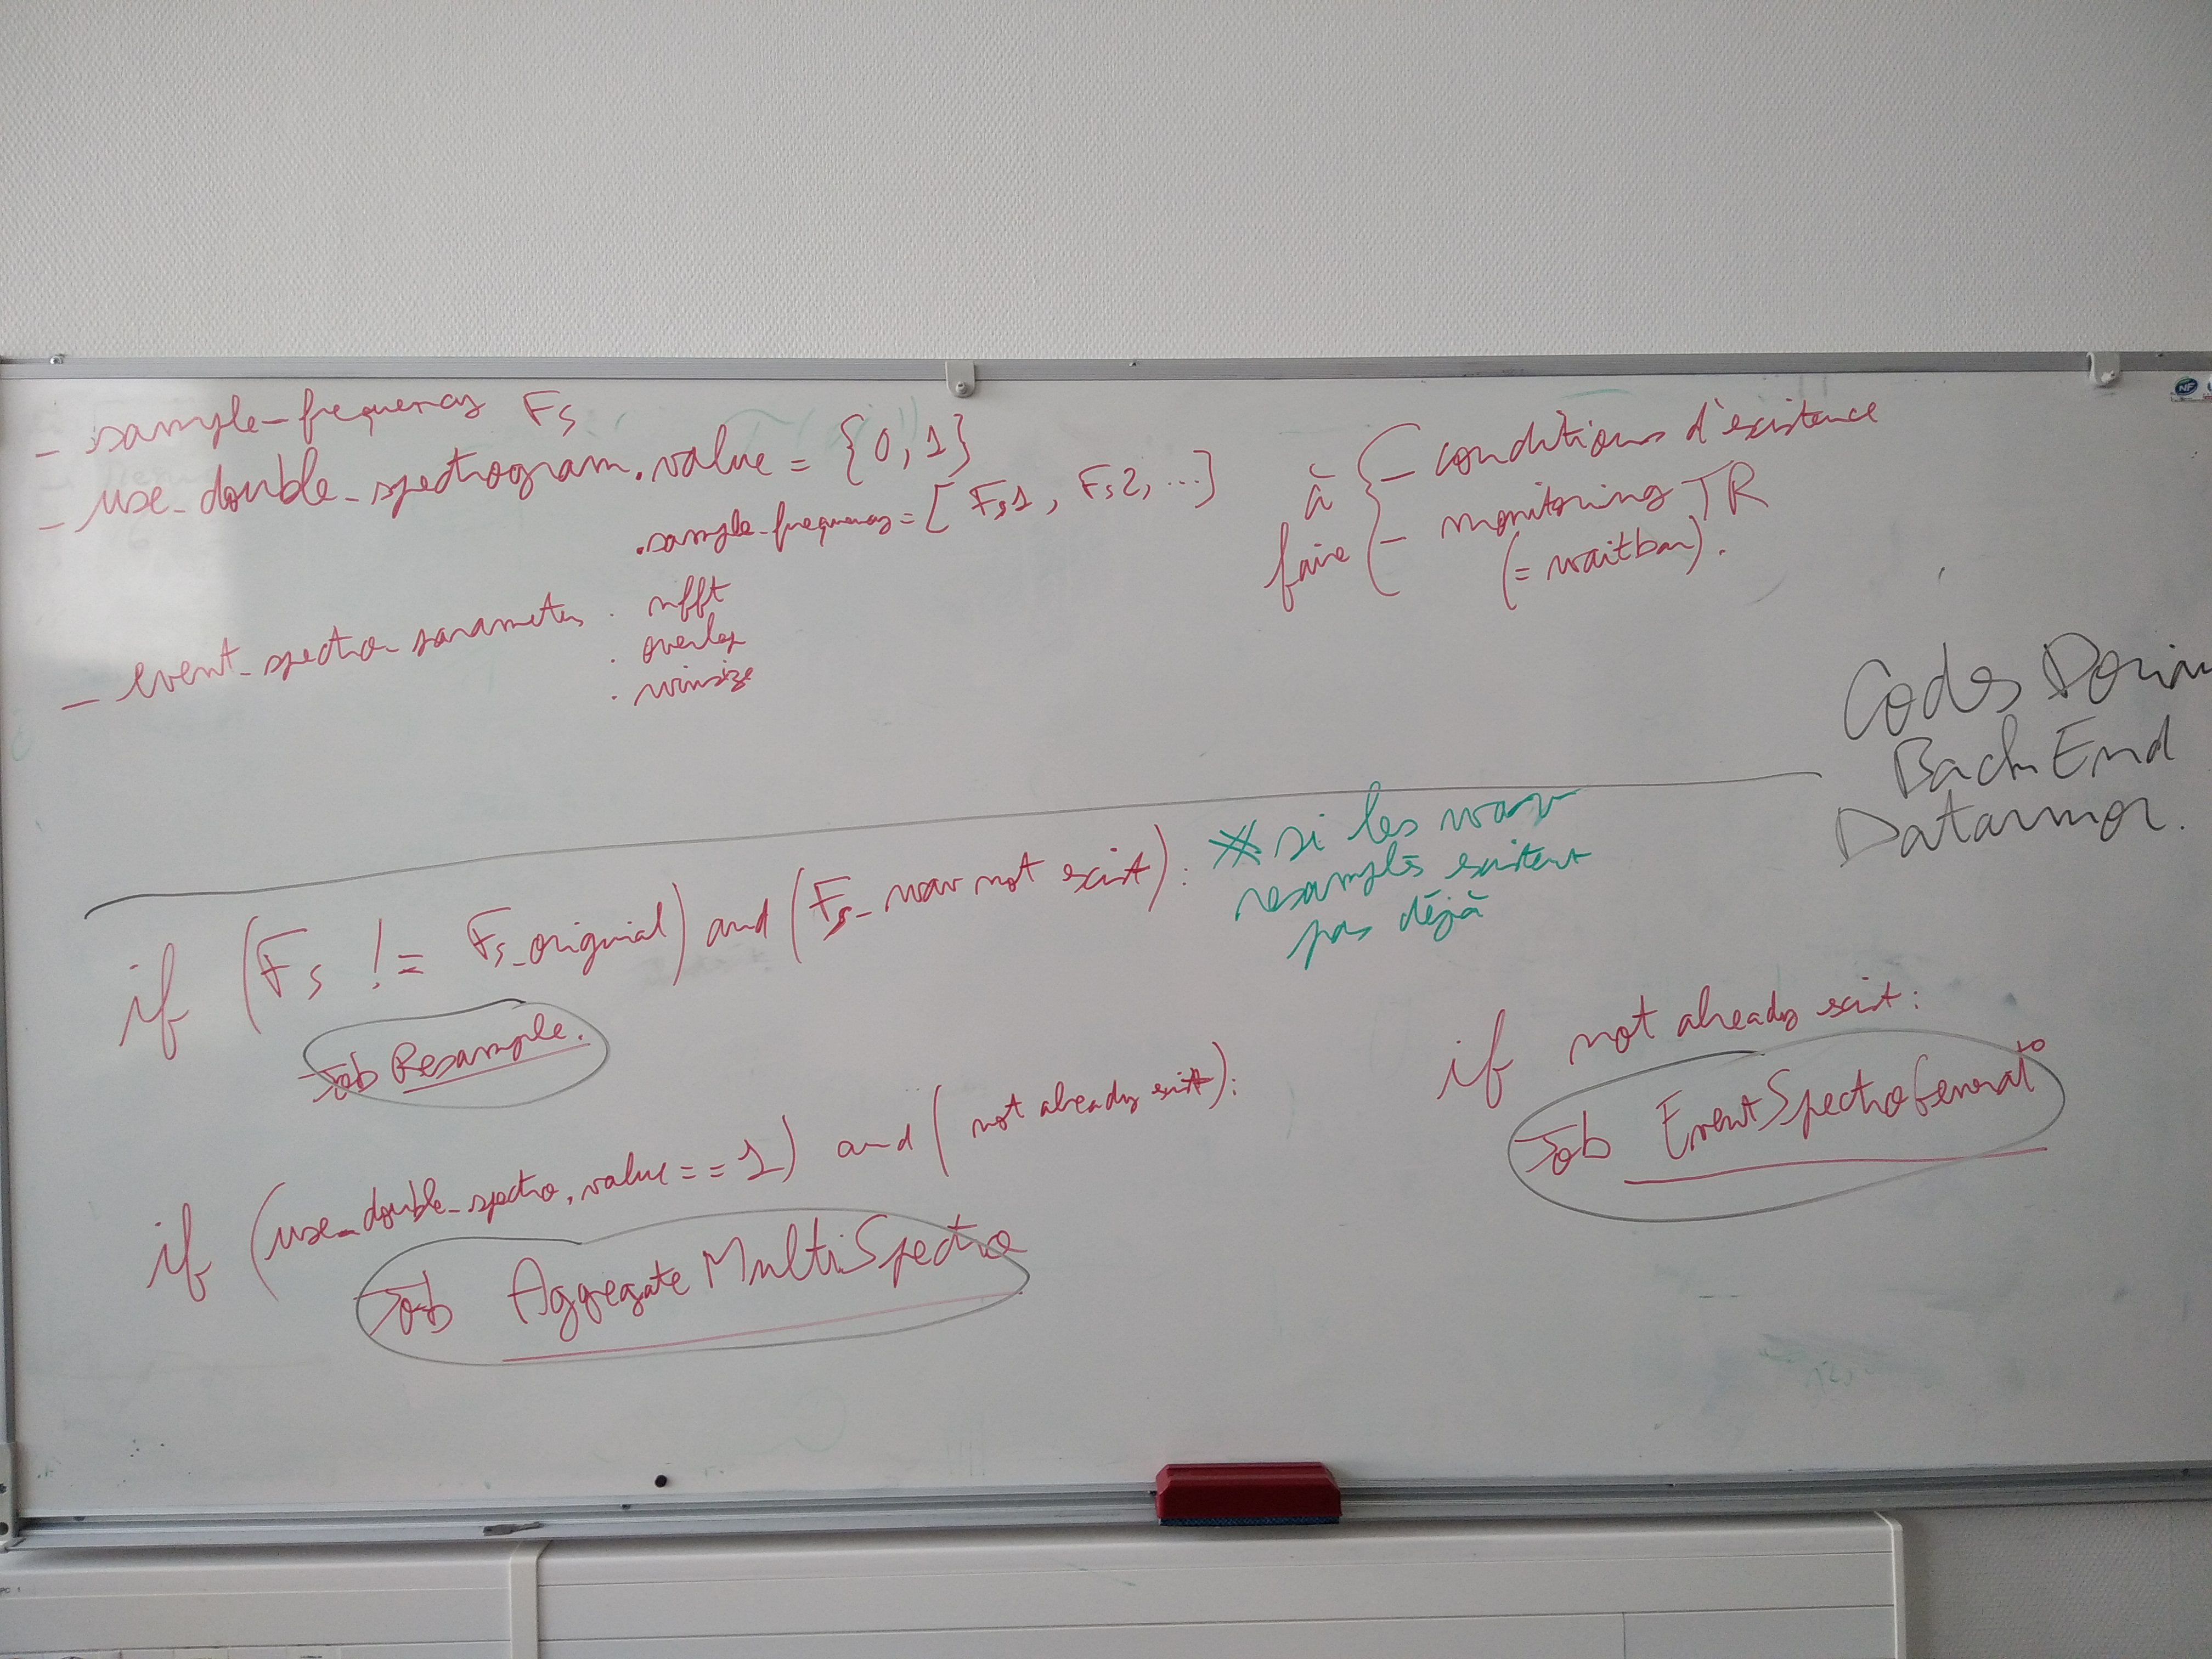 - sample_frequency Fs
- use_double_spectrogram.value = {0,1}
.sample_frequency = [Fs1, Fs2, ...]
- event_spectro_parameters . nfft
. overlap
. winsize
à faire
- conditions d'existence
- monitoring TR
(= waitbar).
Codes
Back End
Datarmor.
if (Fs != Fs_original) and (Fs_wav not exist):
# si les wav
resamplés existent
pas déjà
Job Resample.
if (use_double_spectro.value == 1) and (not already exist):
Job AggregateMultiSpectro
if not already exist:
Job EventSpectroGenerat
NF
PC 1